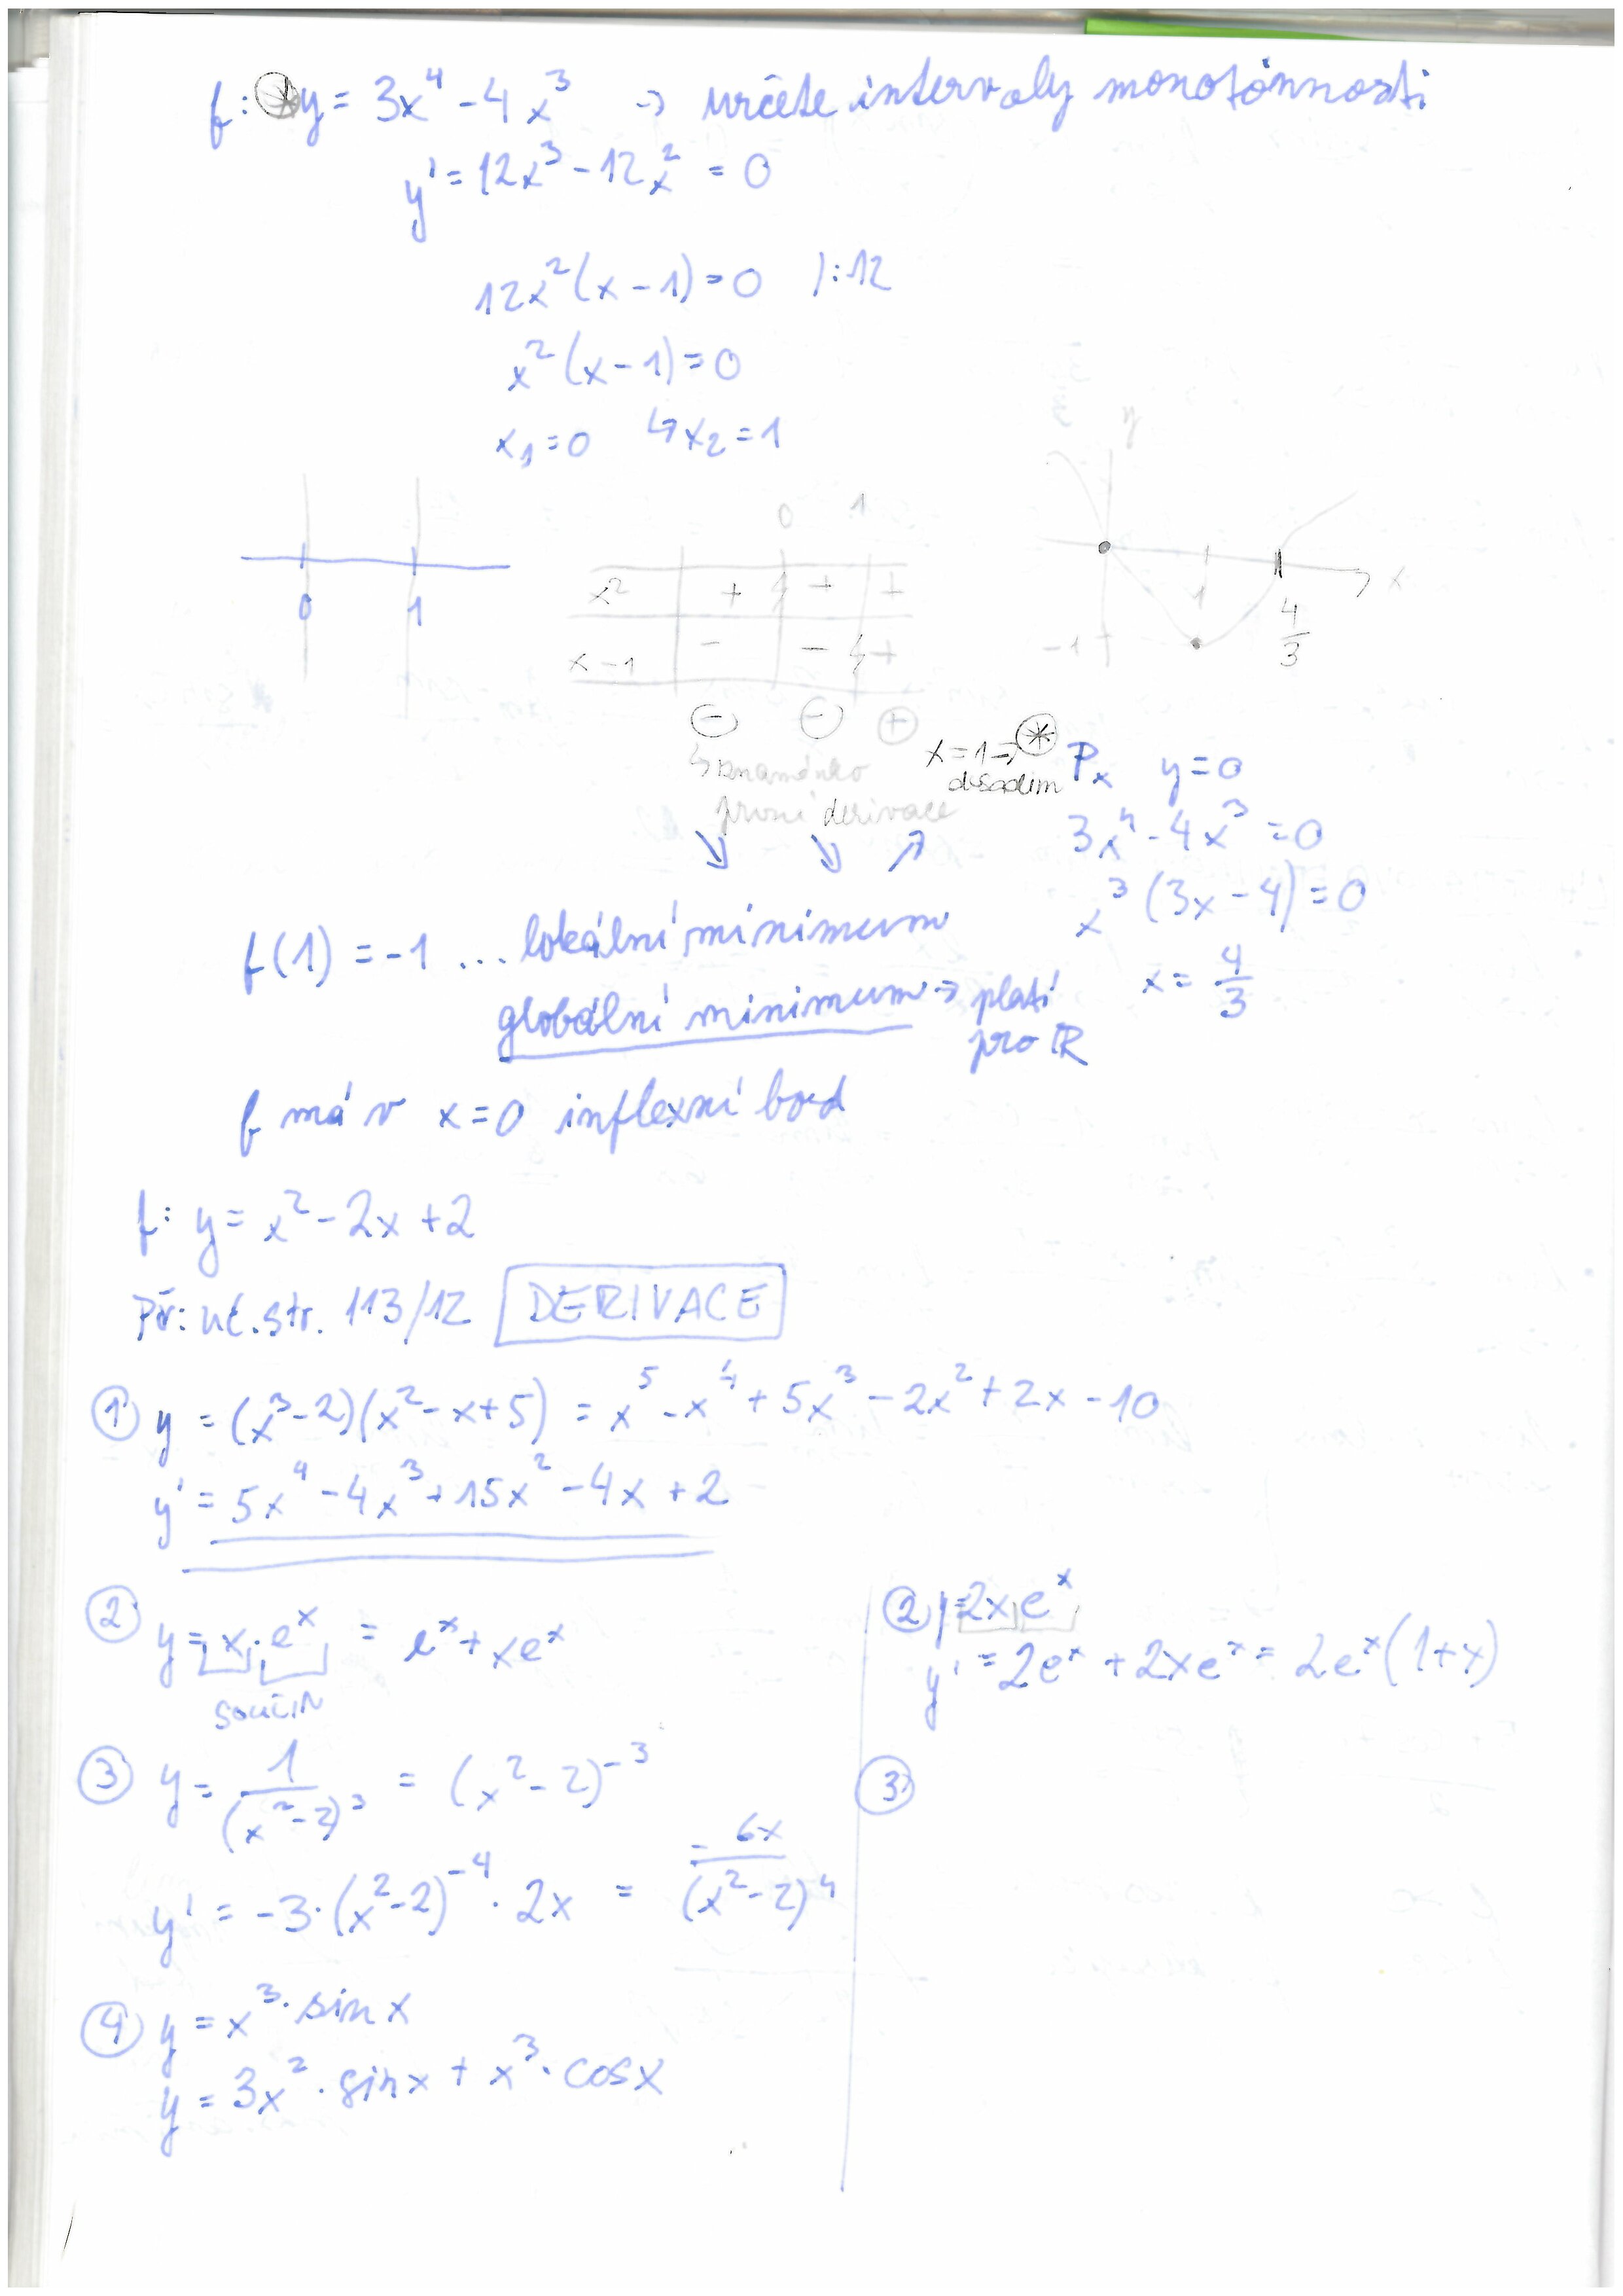 f: ⊛ y = 3x⁴ - 4x³ → určete intervaly monotónnosti
y' = 12x³ - 12x² = 0
12x²(x - 1) = 0 /:12
x²(x - 1) = 0
x₁ = 0 ↳ x₂ = 1
0 1
0 1
x² + + +
x - 1 - - +
⊖ ⊖ ⊕
↳ znaménko
první derivace
↘ ↘ ↗
y
1 x
-1
4/3
x = 1 → ⊛
dosadím
Pₓ y = 0
3x⁴ - 4x³ = 0
x³(3x - 4) = 0
x = 4/3
f(1) = -1 ... lokální minimum
globální minimum → platí
pro ℝ
f má v x = 0 inflexní bod
f: y = x² - 2x + 2
Př: uč. str. 113/12 DERIVACE
① y = (x³ - 2)(x² - x + 5) = x⁵ - x⁴ + 5x³ - 2x² + 2x - 10
y' = 5x⁴ - 4x³ + 15x² - 4x + 2
② y = x · eˣ = eˣ + xeˣ
SOUČIN
② y = 2x eˣ
y' = 2eˣ + 2xeˣ = 2eˣ(1 + x)
③ y = 1/(x² - 2)³ = (x² - 2)⁻³
③
y' = -3 · (x² - 2)⁻⁴ · 2x = -6x/(x² - 2)⁴
④ y = x³ · sin x
y = 3x² · sin x + x³ · cos x